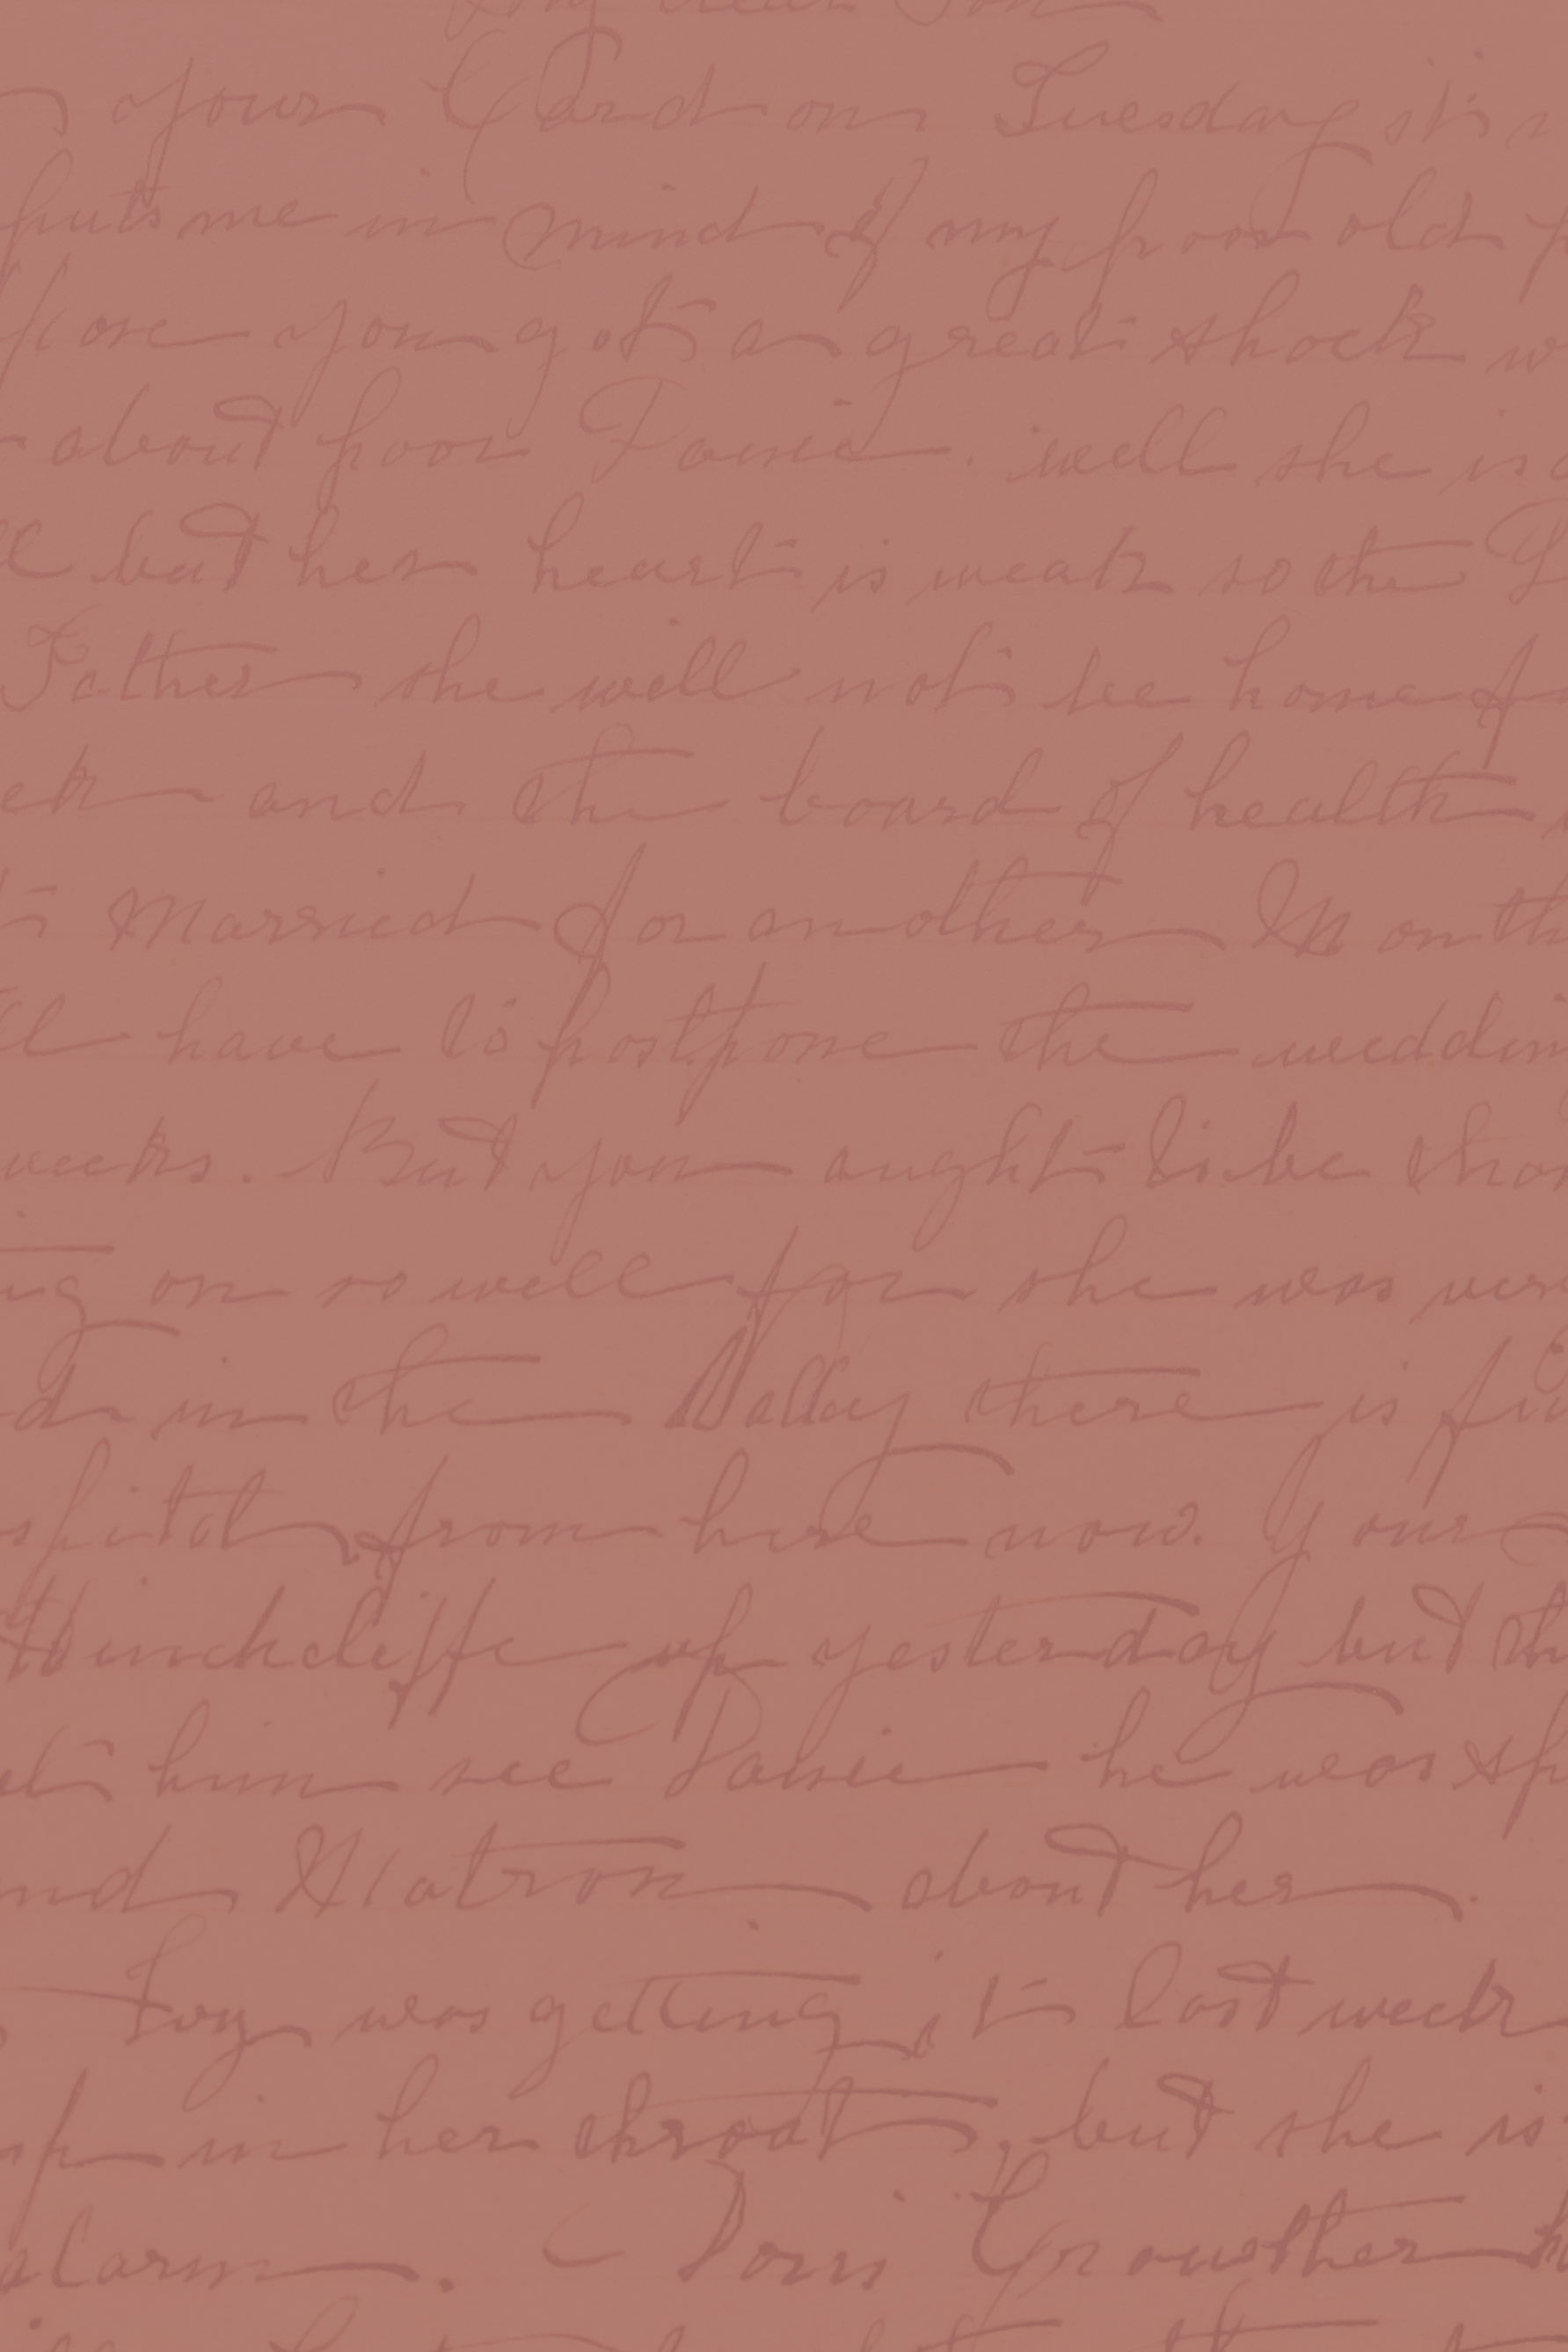 My dear Son
your Card on Tuesday it's
puts me in mind of my poor old
you got a great shock
about poor well she is
but her heart is weak so the
Father she will not be home
and the board of health
Married for another Month
have to postpone the weddin
weeks. But you aught to be
on so well for she was ver
in the Valley there is
spital from here now. Your
Hinchcliffe up yesterday but th
him see he was sp
nd Matron about her.
was getting it last week
up in her throat, but she is
alarm. Doris Crowther